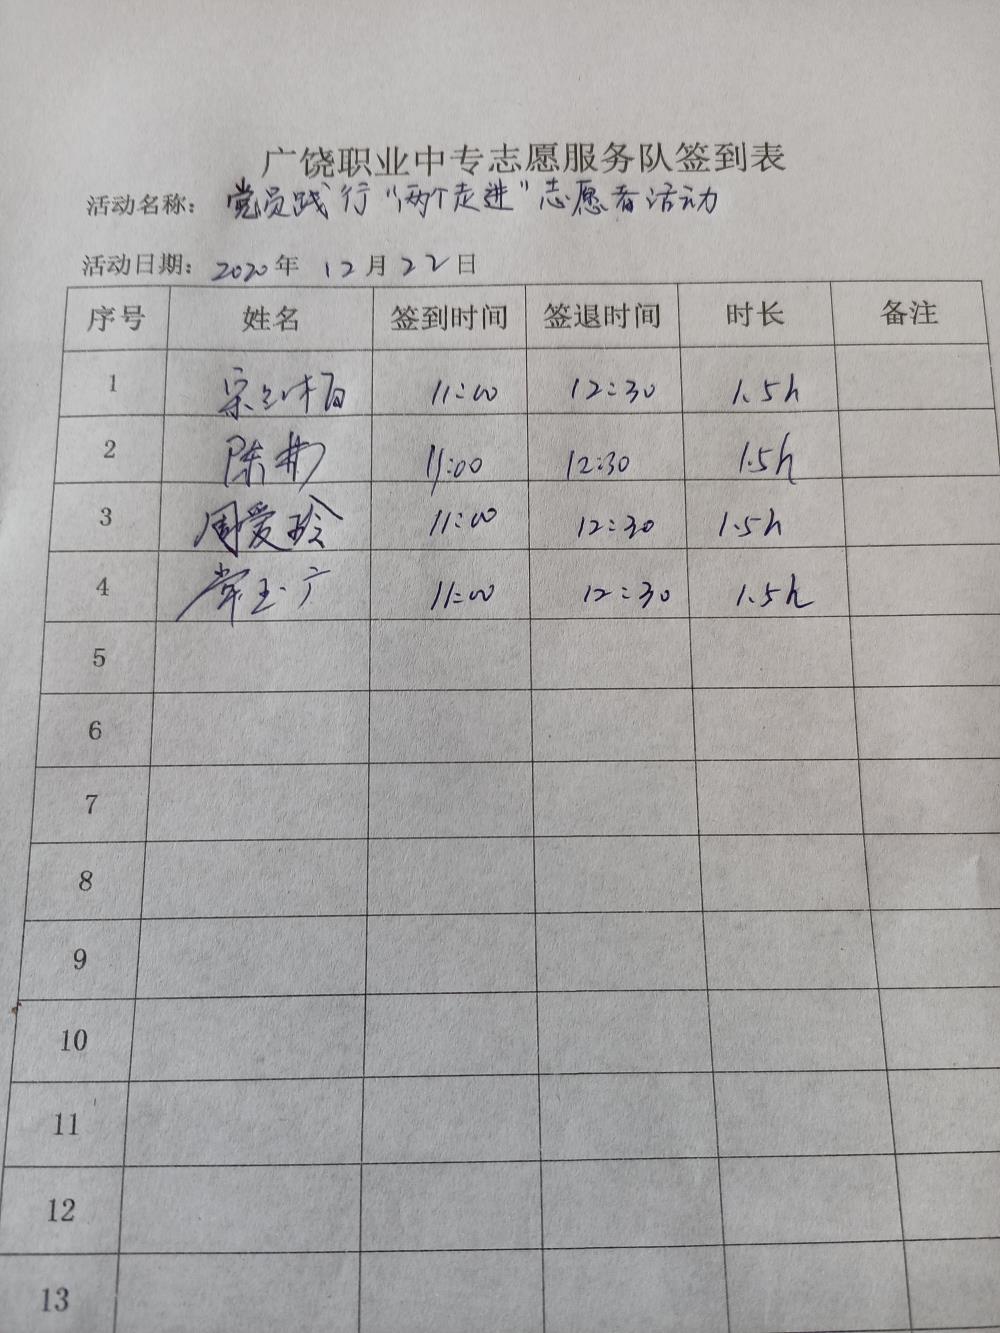 广饶职业中专志愿服务队签到表
活动名称: 党员践行“两个走进”志愿者活动
活动日期: 2020年 12月22日
序号 姓名 签到时间 签退时间 时长 备注
1 11:00 12:30 1.5h
2 11:00 12:30 1.5h
3 周爱玲 11:00 12:30 1.5h
4 常玉广 11:00 12:30 1.5h
5
6
7
8
9
10
11
12
13